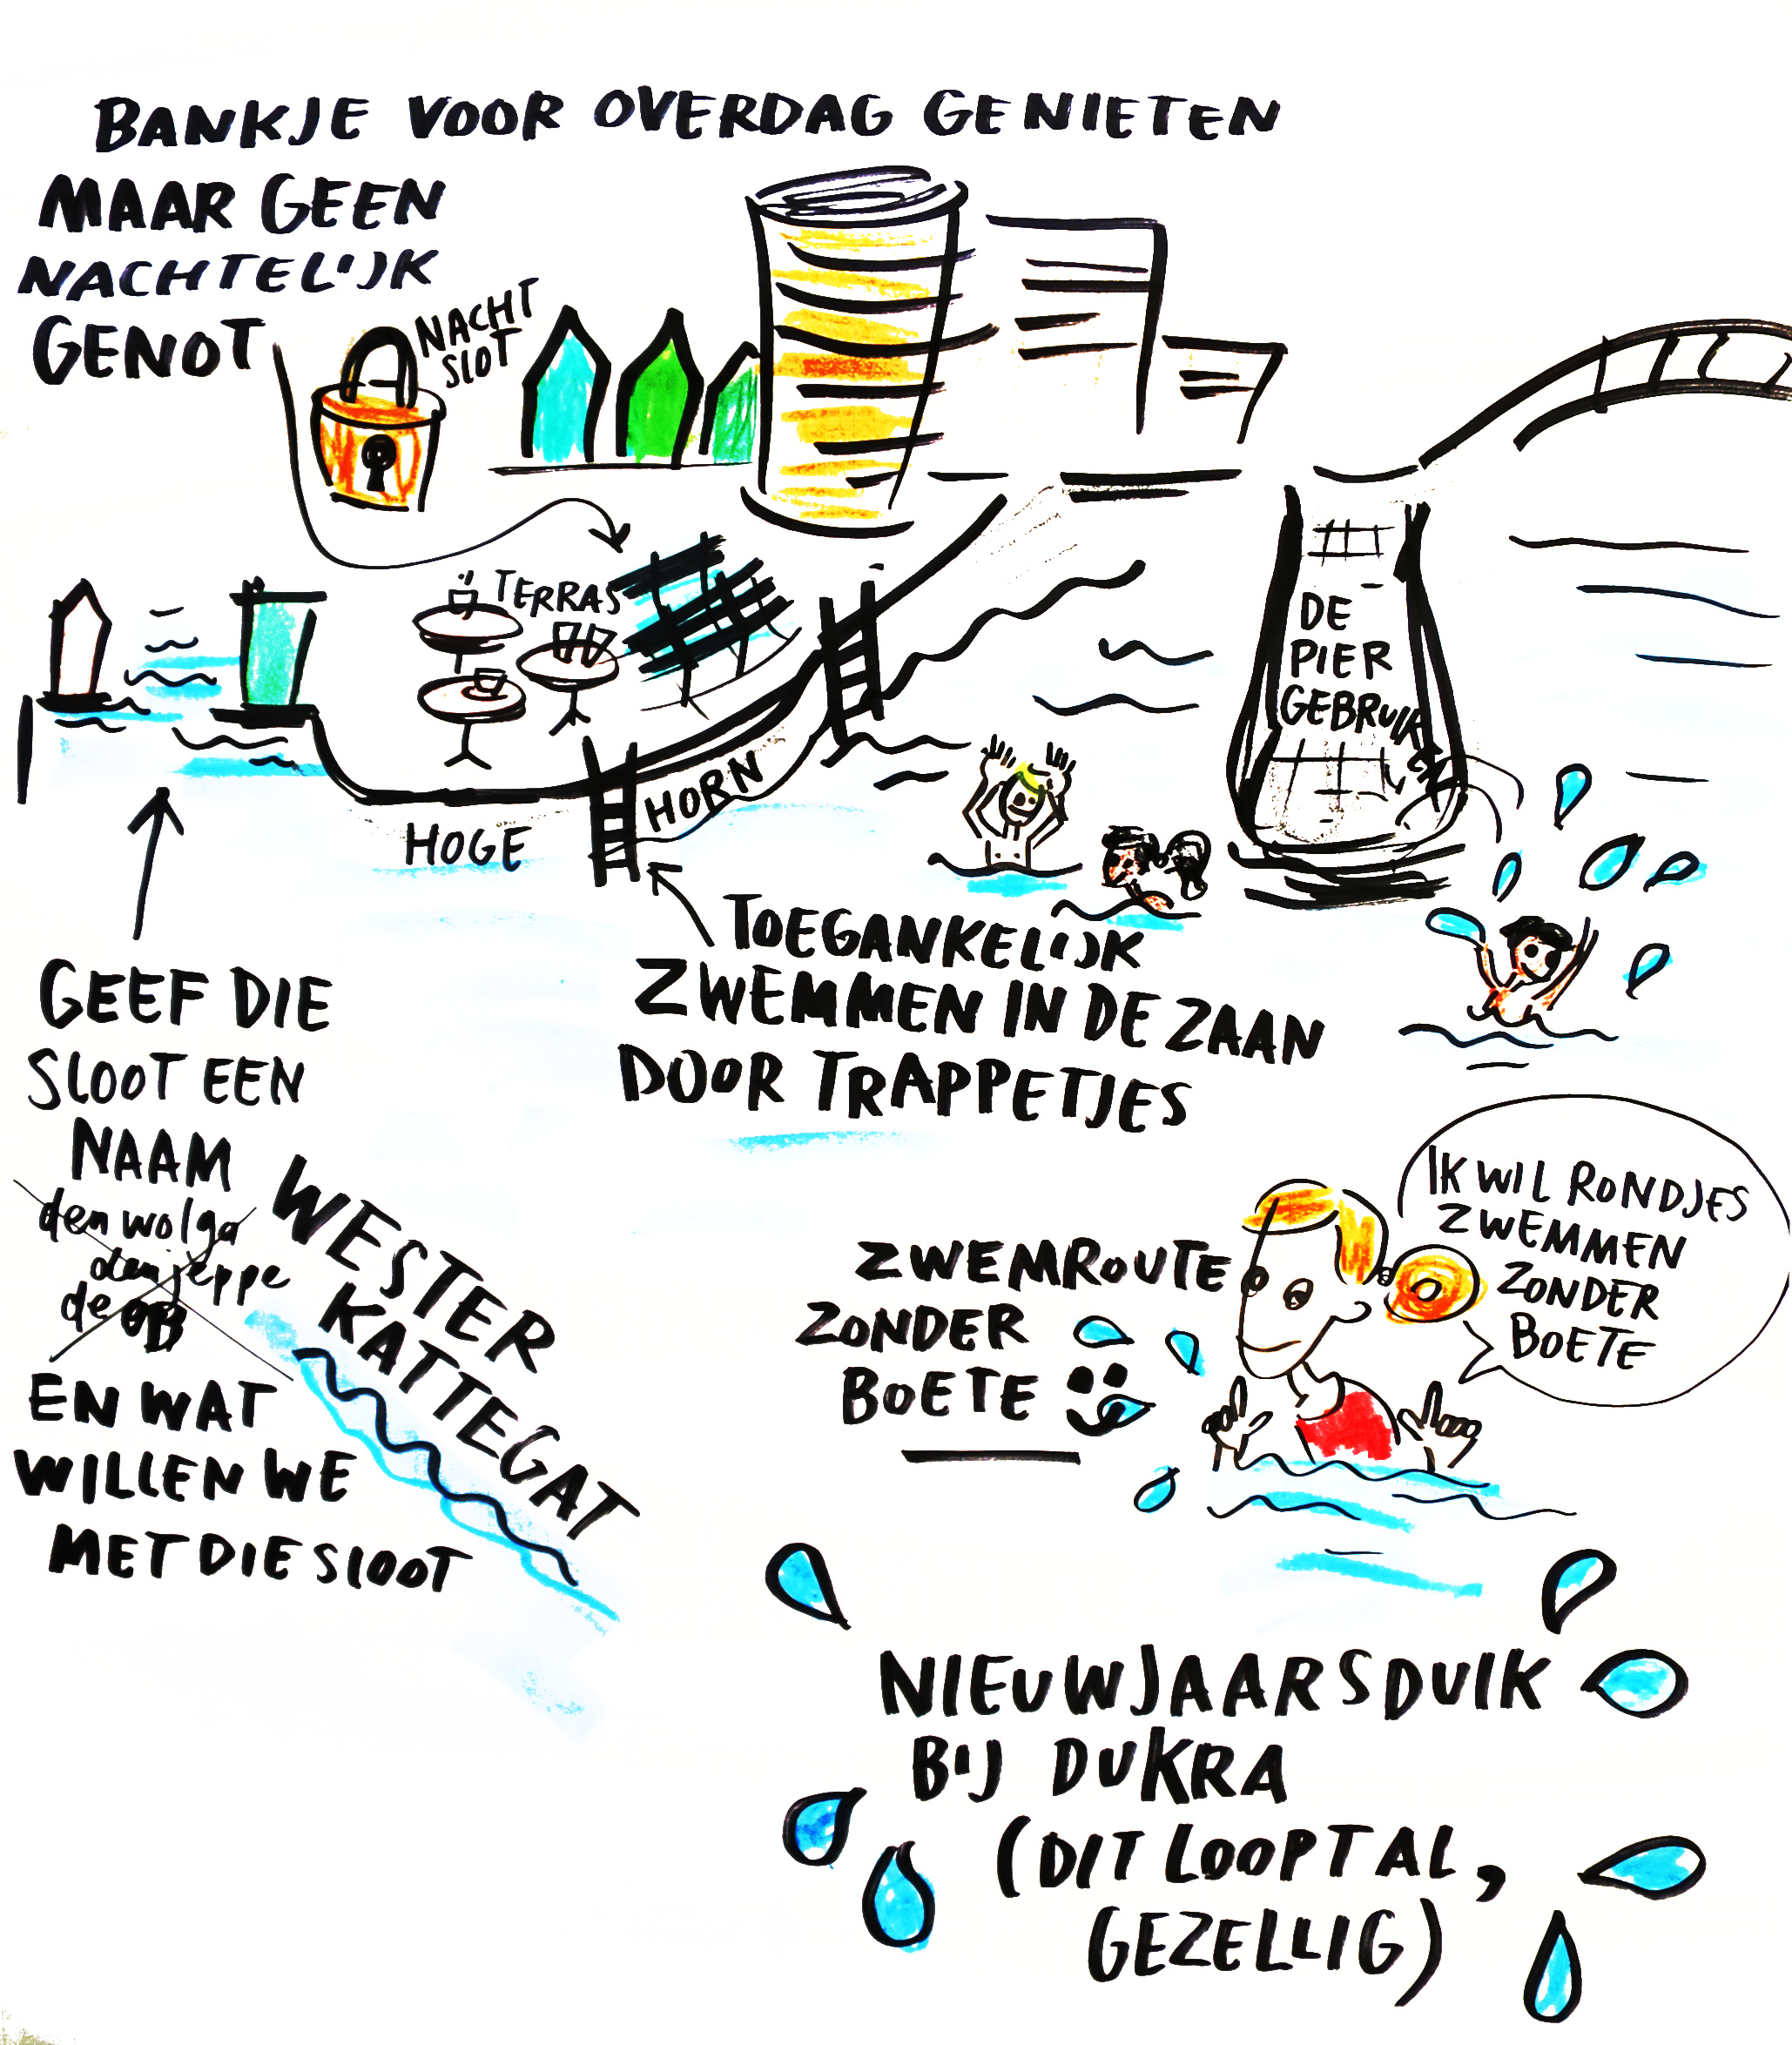 BANKJE VOOR OVERDAG GENIETEN
MAAR GEEN
NACHTELIJK
GENOT
NACHT
SLOT
TERRAS
DE
PIER
GEBRUIK
HOGE
HORN
TOEGANKELIJK
ZWEMMEN IN DE ZAAN
DOOR TRAPPETJES
GEEF DIE
SLOOT EEN
NAAM
den wolga
den jeppe
de
WESTER
KATTEGAT
EN WAT
WILLEN WE
MET DIE SLOOT
ZWEMROUTE
ZONDER
BOETE
IK WIL RONDJES
ZWEMMEN
ZONDER
BOETE
NIEUWJAARSDUIK
BIJ DUKRA
(DIT LOOPT AL,
GEZELLIG)